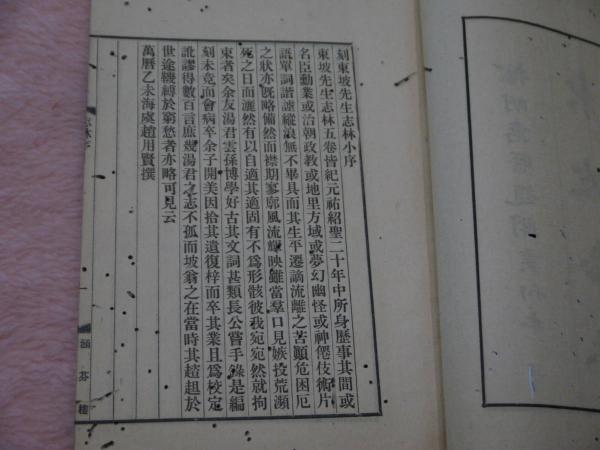 刻東坡先生志林小序
東坡先生志林五卷皆紀元祐紹聖二十年中所身歷事其間或
名臣勳業或治朝政教或地里方域或夢幻幽怪或神僊伎術片
語單詞諧謔縱浪無不畢具而其生平遷謫流離之苦顚危困厄
之狀亦旣略備然而襟期寥廓風流輝映雖當羣口見嫉投荒瀕
死之日而灑然有以自適其適固有不爲形骸彼我宛宛然就拘
束者矣余友湯君雲孫博學好古其文詞甚類長公嘗手錄是編
刻未竟而會病卒余子開美因拾其遺復梓而卒其業且爲校定
訛謬得數百言庶幾湯君之志不孤而坡翁之在當時其趑趄於
世途轗軻於窮愁者亦略可見云
萬曆乙未海虞趙用賢撰
一
涵芬樓